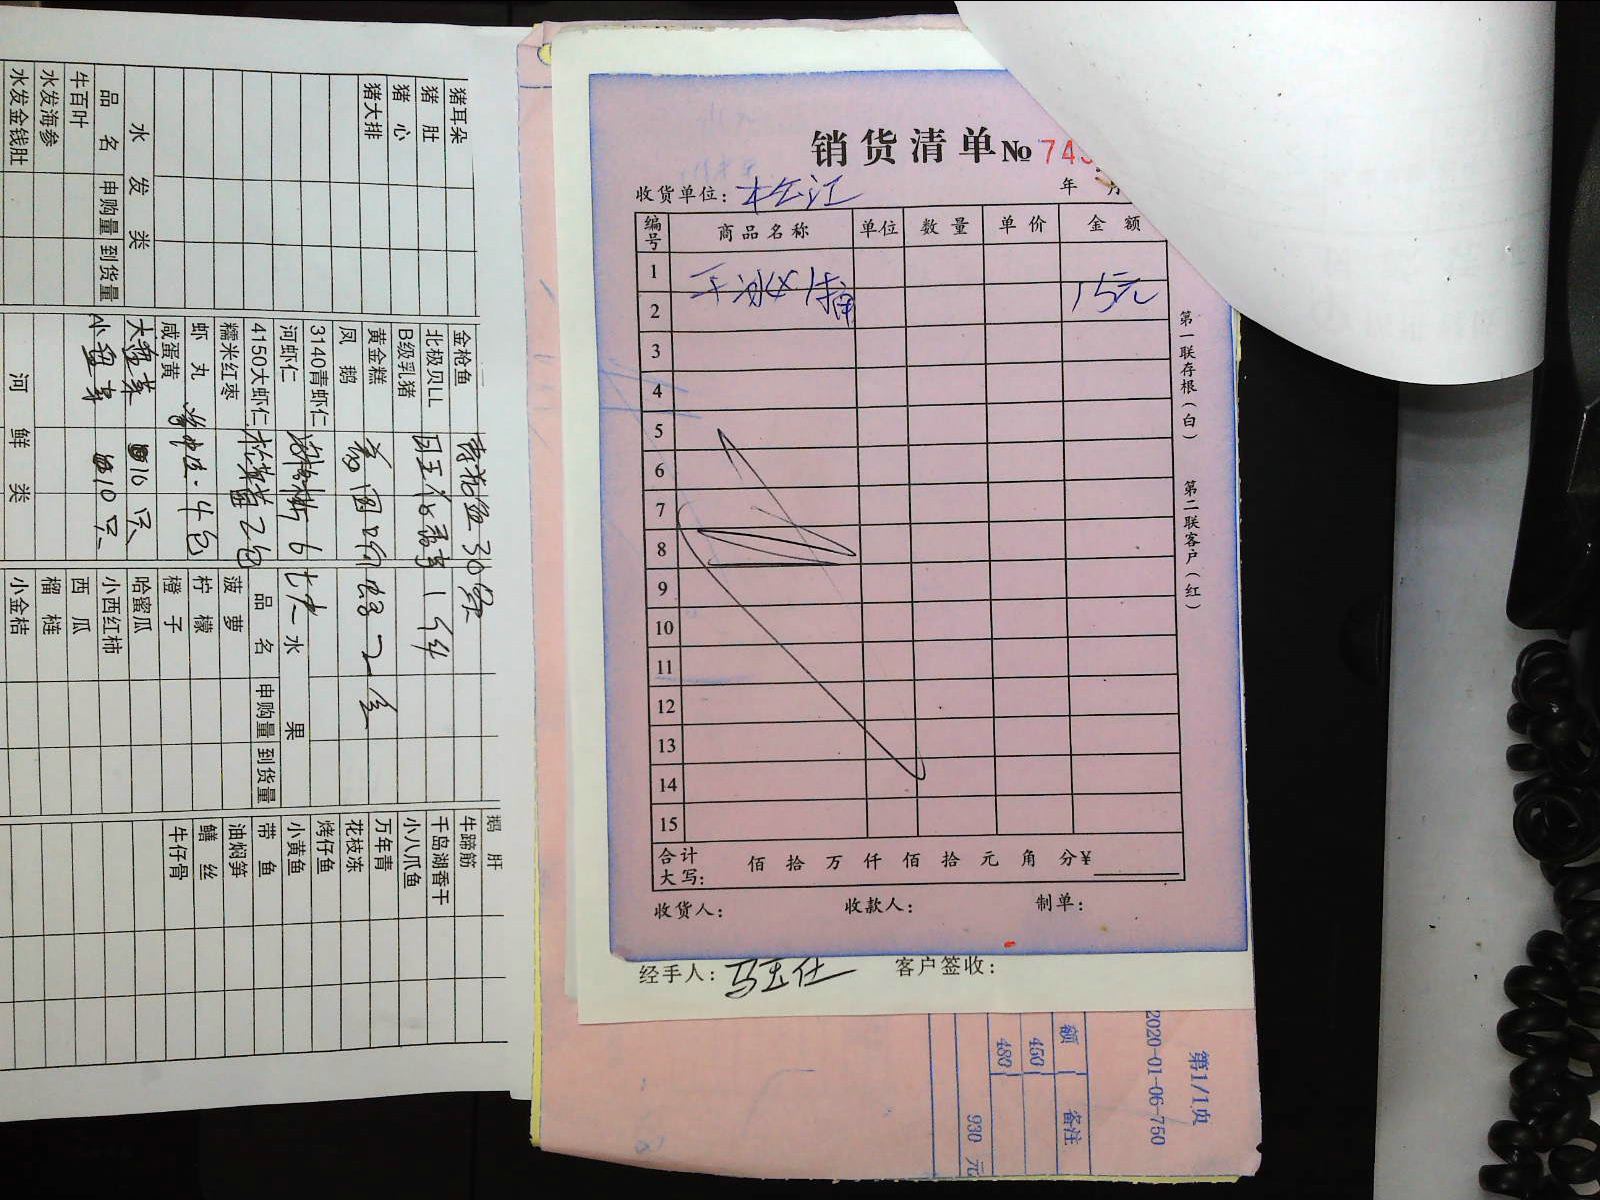 销货清单 № 74
收货单位: 松江 年 月
编号 商品名称 单位 数量 单价 金额
1 干冰 1桶 15元
2
3
4
5
6
7
8
9
10
11
12
13
14
15
合计大写: 佰 拾 万 仟 佰 拾 元 角 分 ¥
收货人: 收款人: 制单:
第一联存根(白) 第二联客户(红)
经手人: 客户签收:
第1/1页
2020-01-06-750
额 备注
450
480
930 元
猪耳朵
猪肚
猪心
猪大排
水发类
品名 申购量 到货量
牛百叶
水发海参
水发金钱肚
金枪鱼
北极贝LL
B级乳猪
黄金糕
凤鹅
3140青虾仁
河虾仁
4150大虾仁
糯米红枣
虾丸
咸蛋黄
大盘菜 16只
10只
河鲜类
30条
1件
6
2包
4包
水果
品名 申购量 到货量
菠萝
柠檬
橙子
哈蜜瓜
小西红柿
西瓜
榴梿
小金桔
鹅肝
牛蹄筋
千岛湖香干
小八爪鱼
万年青
花枝冻
烤仔鱼
小黄鱼
带鱼
油焖笋
鳝丝
牛仔骨